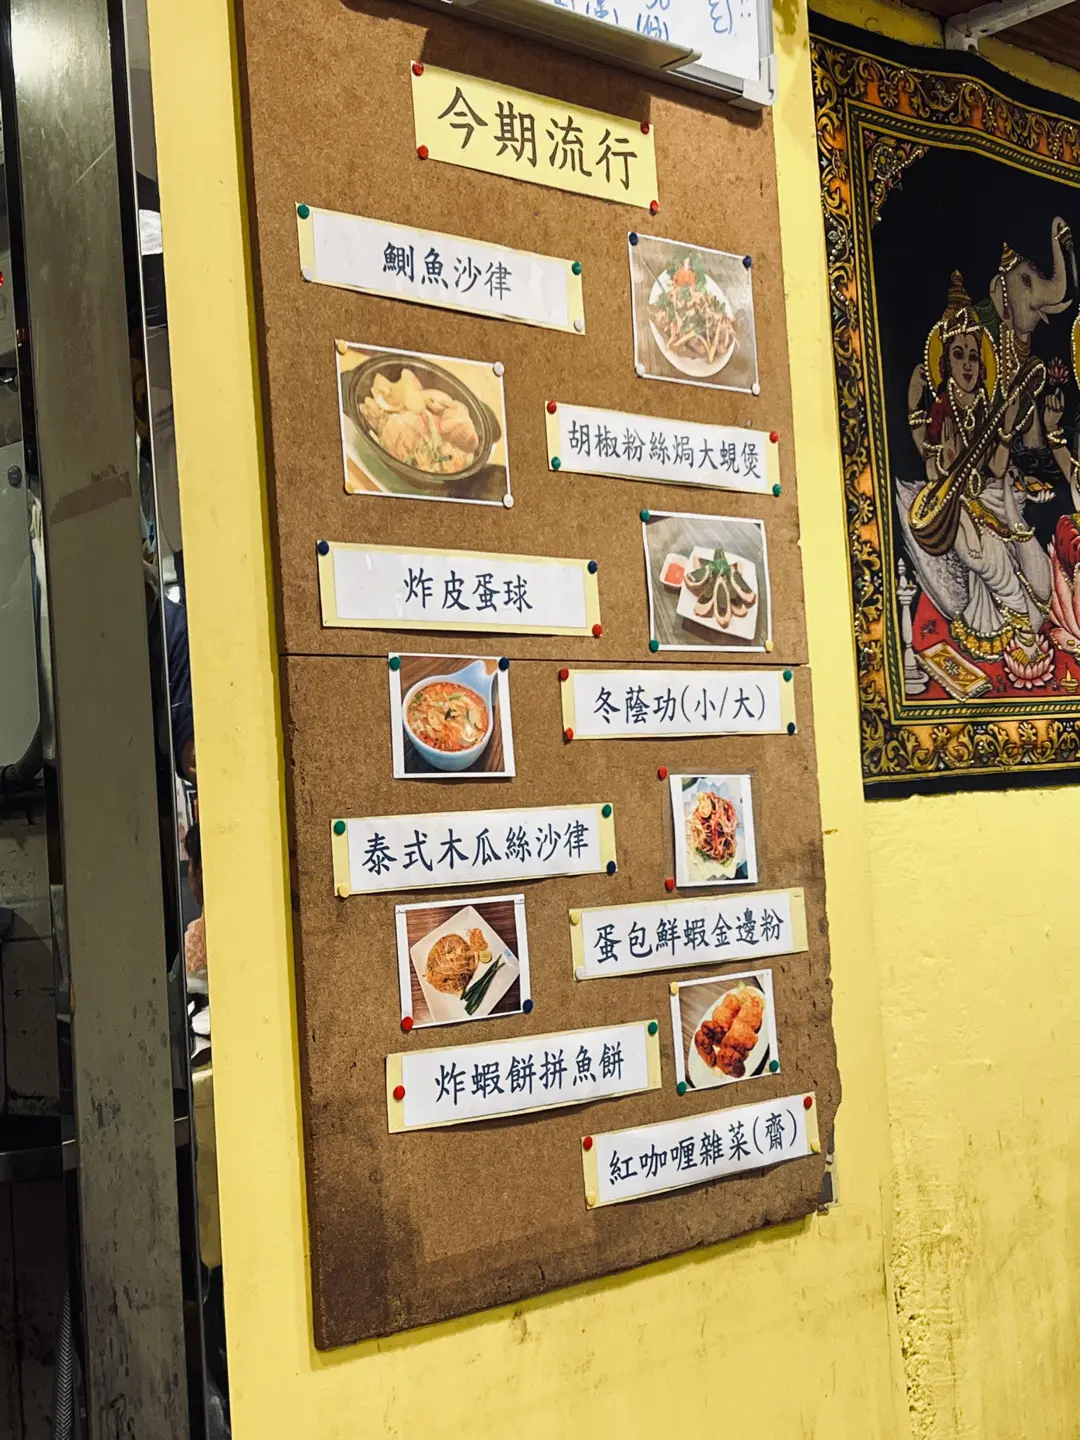 今期流行
鰂魚沙律
胡椒粉絲焗大蜆煲
炸皮蛋球
冬蔭功(小/大)
泰式木瓜絲沙律
蛋包鮮蝦金邊粉
炸蝦餅拼魚餅
紅咖喱雜菜(齋)